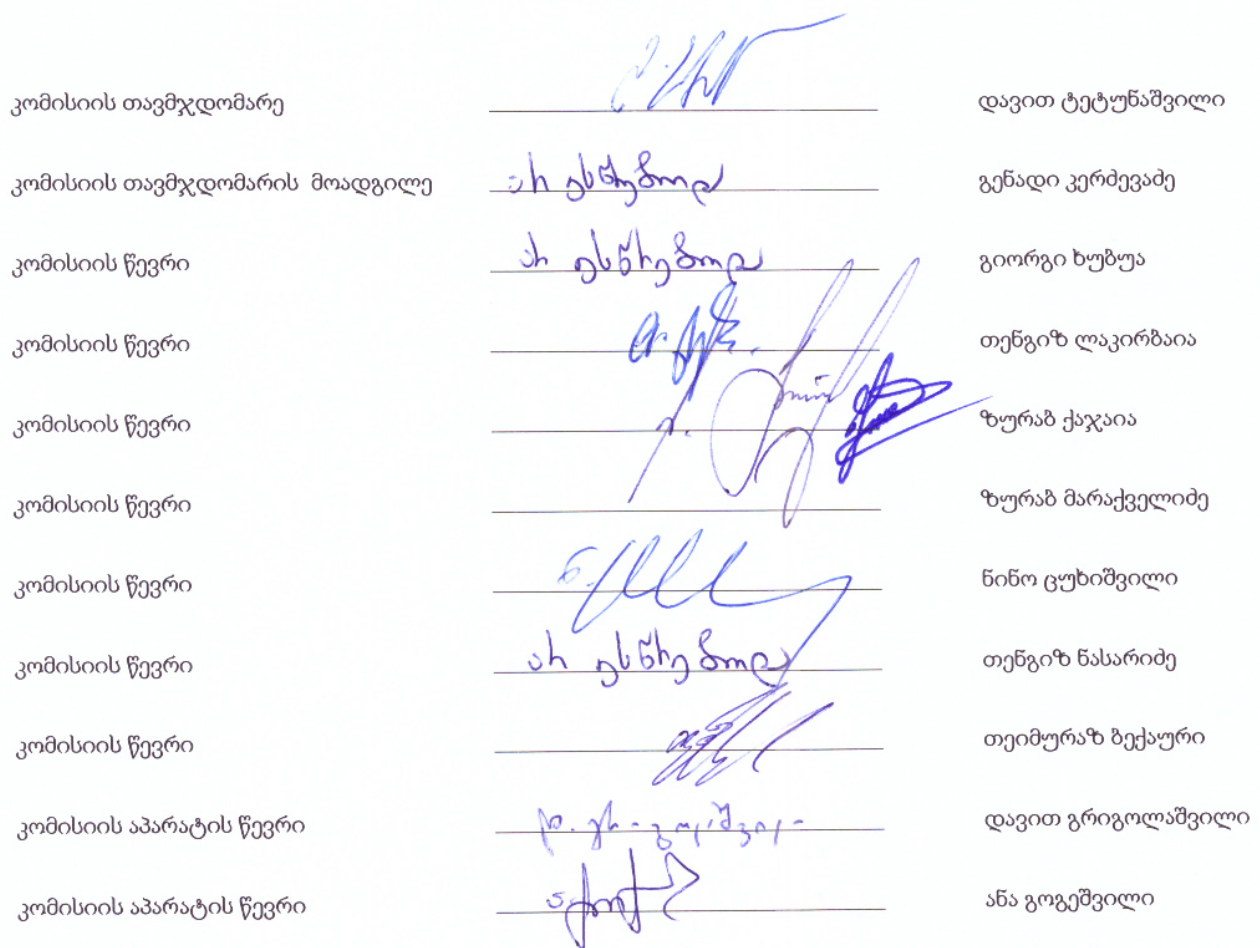 კომისიის თავმჯდომარე დავით ტეტუნაშვილი
კომისიის თავმჯდომარის მოადგილე არ ესწრებოდა გენადი კერძევაძე
კომისიის წევრი არ ესწრებოდა გიორგი ხუბუა
კომისიის წევრი თენგიზ ლაკირბაია
კომისიის წევრი ზურაბ ქაჯაია
კომისიის წევრი ზურაბ მარაქველიძე
კომისიის წევრი ნინო ცუხიშვილი
კომისიის წევრი არ ესწრებოდა თენგიზ ნასარიძე
კომისიის წევრი თეიმურაზ ბექაური
კომისიის აპარატის წევრი დავით გრიგოლაშვილი
კომისიის აპარატის წევრი ანა გოგეშვილი